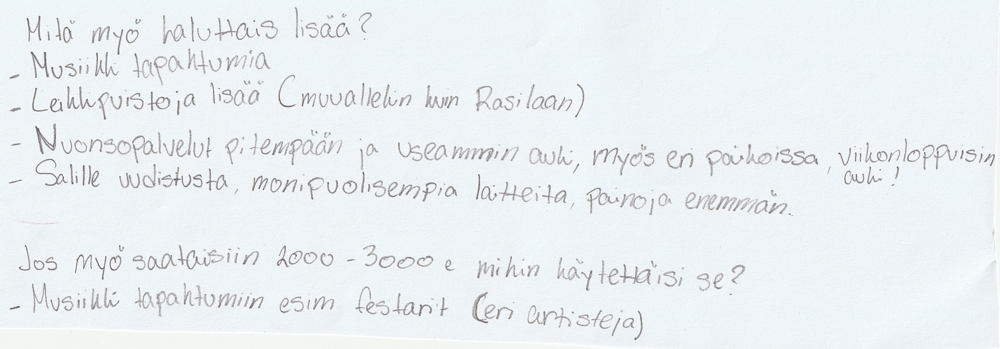 Mitä myö haluttais lisää?
- Musiikki tapahtumia
- Leikkipuistoja lisää (muuallekin kun Rasilaan)
- Nuorisopalvelut pitempään ja useammin auki, myös eri paikoissa, viikonloppuisin auki!
- Salille uudistusta, monipuolisempia laitteita, painoja enemmän.
Jos myö saataisiin 2000 - 3000 e mihin käytettäisi se?
- Musiikki tapahtumiin esim festarit (eri artisteja)